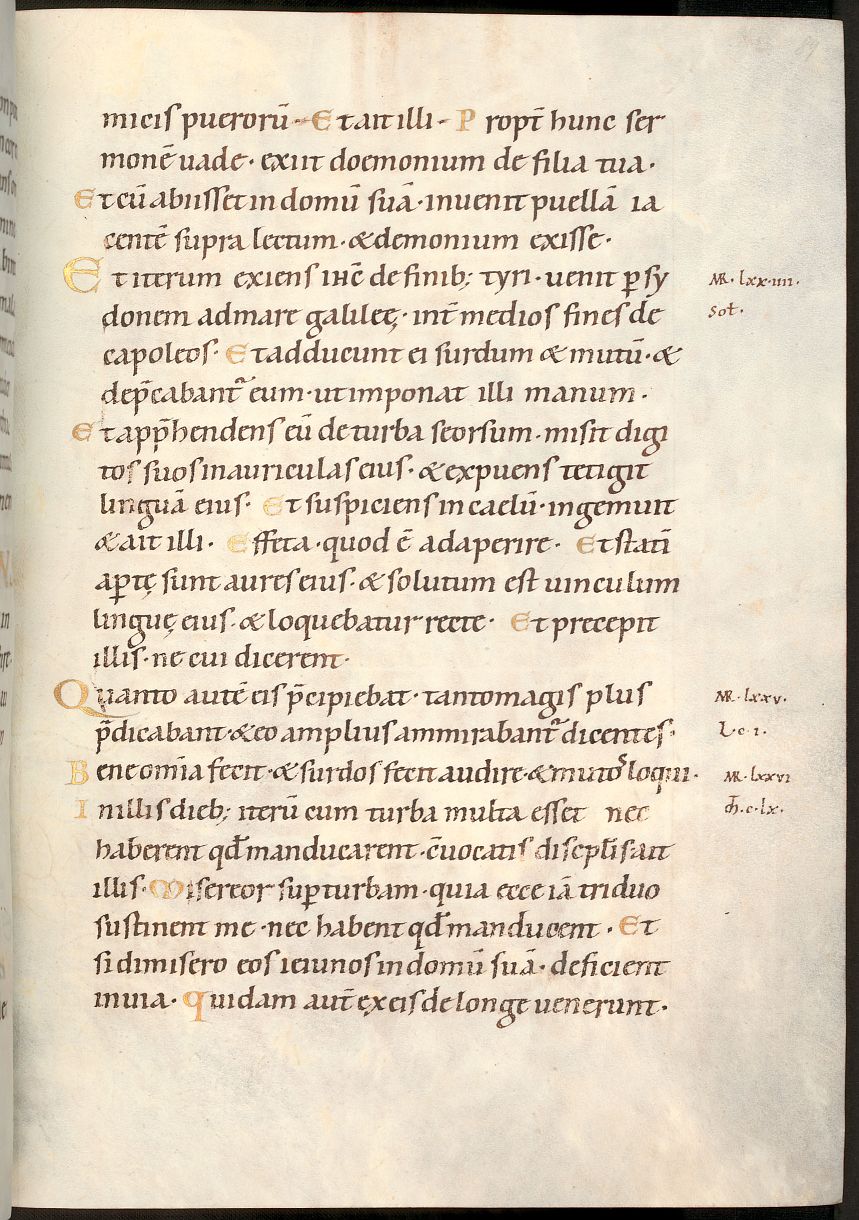 micis puerorū· Et ait illi· Propt̄ hunc ser
monē uade· exiit doemonium de filia tua·
Et cū abiisset in domū suā· inuenit puellā ia
centē supra lectum· & demonium exisse·
Et iterum exiens ihc̄ de finib; tyri· uenit ꝑ sy
MR· lxx·iiii·
donem ad mare galileę· int̄ medios fines de
Sol̄·
capoleos· Et adducunt ei surdum & mutū· &
dep̄cabant᷑ eum· ut imponat illi manum·
Et app̄hendens eū de turba seorsum· misit digi
tos suos in auriculas eius· & expuens tetigit
linguā eius· Et suspiciens in caelū· ingemuit
& ait illi· Effeta· quod ē adaperire· Et statī
aꝑtę sunt aures eius· & solutum est uinculum
linguę eius· & loquebatur recte· Et precepit
illis· ne cui dicerent·
Quanto autē eis p̄cipiebat· tanto magis plus
MR· lxxv·
p̄dicabant· & eo amplius ammirabant᷑ dicentes·
L·c·i·
Bene om̄ia fecit· & surdos fecit audire· & mutoˢ loqui·
MR· lxxvi
In illis dieb; iterū cum turba multa esset nec
m̄·c·lx·
haberent qd̄ manducarent· c̄uocatis discipl̄is ait
illis· Misereor suꝑ turbam· quia ecce iā triduo
sustinent me· nec habent qd̄ manducent· Et
si dimisero eos ieiunos in domū suā· deficient
in uia· Quidam aut̄ ex eis de longe uenerunt·